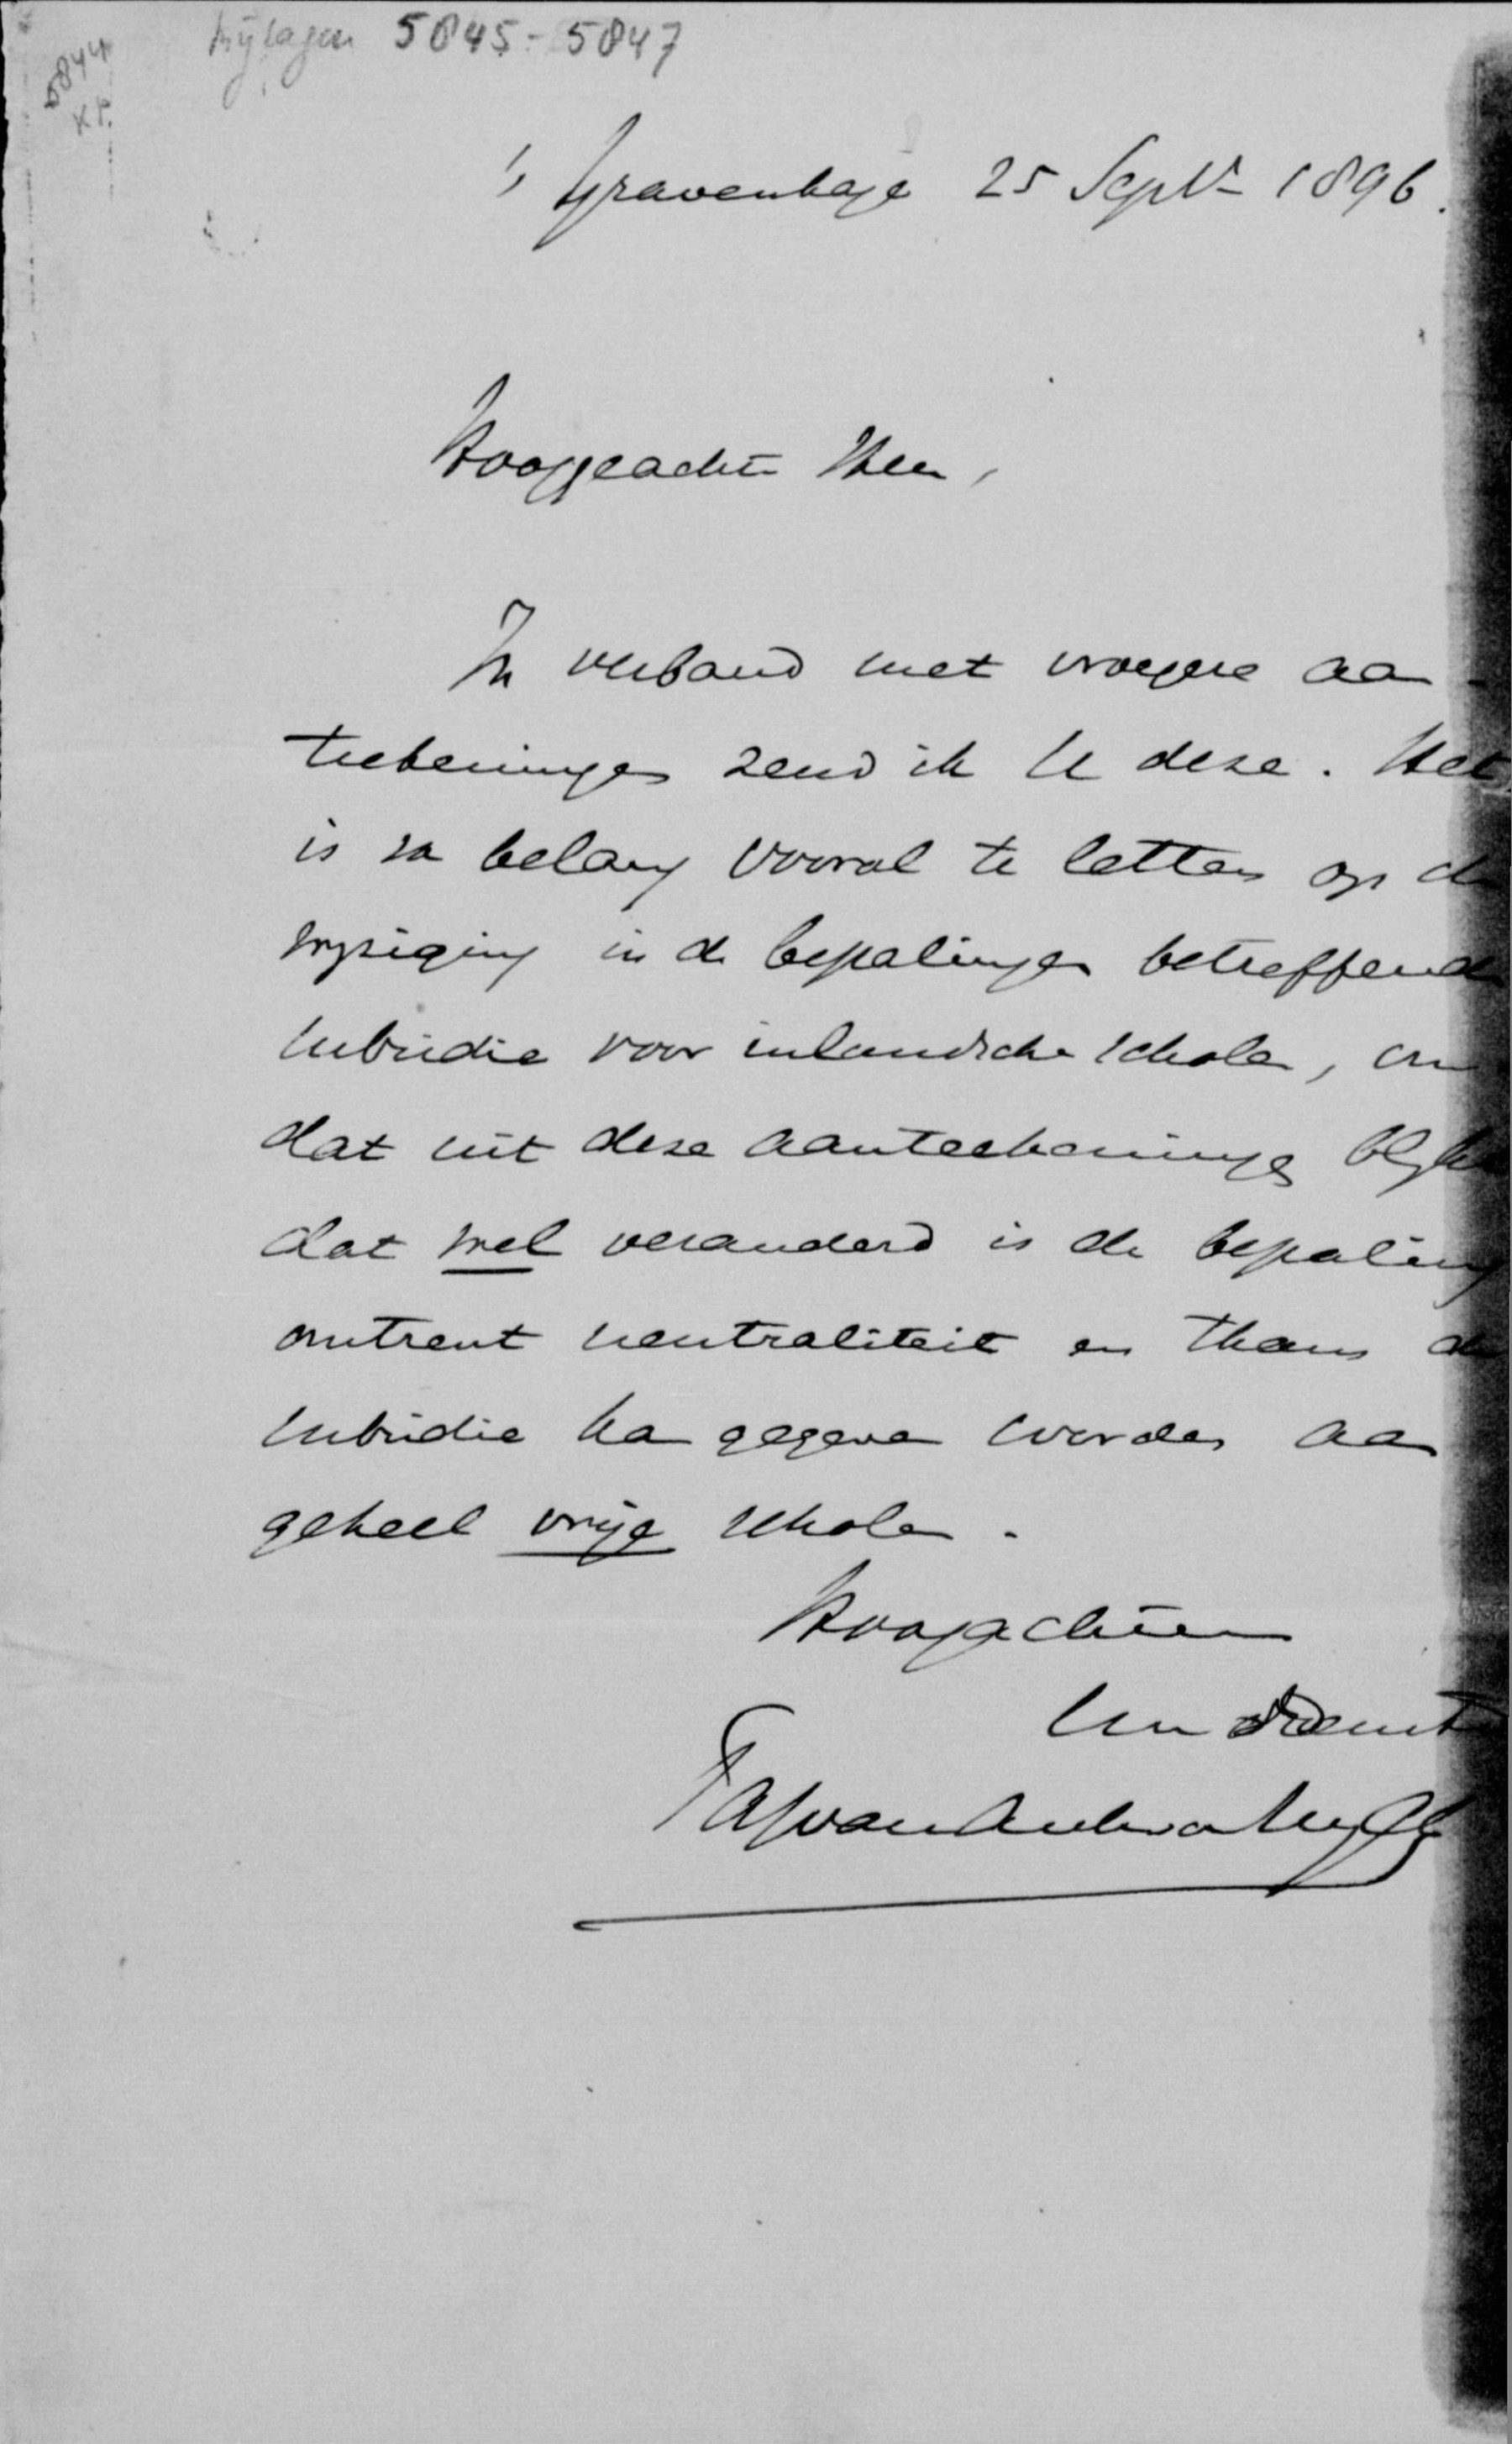 bijlagen 5845-5847
5844
KP.
's Gravenhage 25 Sept 1896.
Hooggeachte Heer,
In verband met vroegere aan-
teekeningen zend ik U deze. Het
is van belang vooral te letten op de
wijziging in de bepalingen betreffende
subsidie voor inlandsche scholen, om
dat uit deze aanteekeningen blijkt
dat wel veranderd is de bepaling
omtrent neutraliteit en thans de
subsidie kan gegeven worden aan
geheel vrije scholen.
Hoogachtend
Uw dw